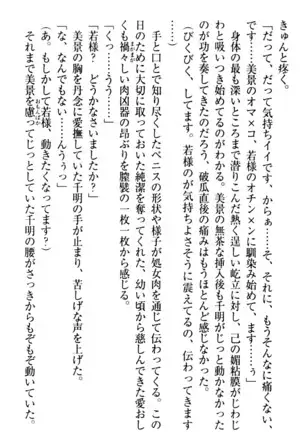 きゅんと疼く。
「だって、だって気持ちイイです、からぁ……そ、それに、もうそんなに痛くない、
です……美景のオマ〇コ、若様のオチン〇ンに馴染み始めて、ます……ぅ」
身体の最も深いところまで潜りこんだ熱く逞しい屹立に対し、己の媚粘膜がじわじ
わと吸いつき始めてるのがわかる。美景の無茶な挿入後も千明がじっと動かなかった
のが功を奏してきたのだろう、破瓜直後の痛みはもうほとんど感じなかった。
(ぴくぴく、してます。若様のが気持ちよさそうに震えてるの、伝わってきます
手と口とで知り尽くしたペニスの形状や様子が処女肉を通じて伝わってくる。この
日のために大切に取っておいた純潔を奪ってくれた、幼い頃から慈しんできた愛おし
くも禍々しい肉凶器の昂ぶりを膣襞の一枚一枚から感じる。
「くっ……うう……」
「若様？　どうかなさいましたか？」
美景の胸を丹念に愛撫していた千明の手が止まり、苦しげな声を上げた。
「な、なんでもない……んうぅっ」
(あ。もしかして若様、動きたくなってます？)
それまで美景を慮ってじっとしていた千明の腰がさっきからもぞもぞ動いていた。